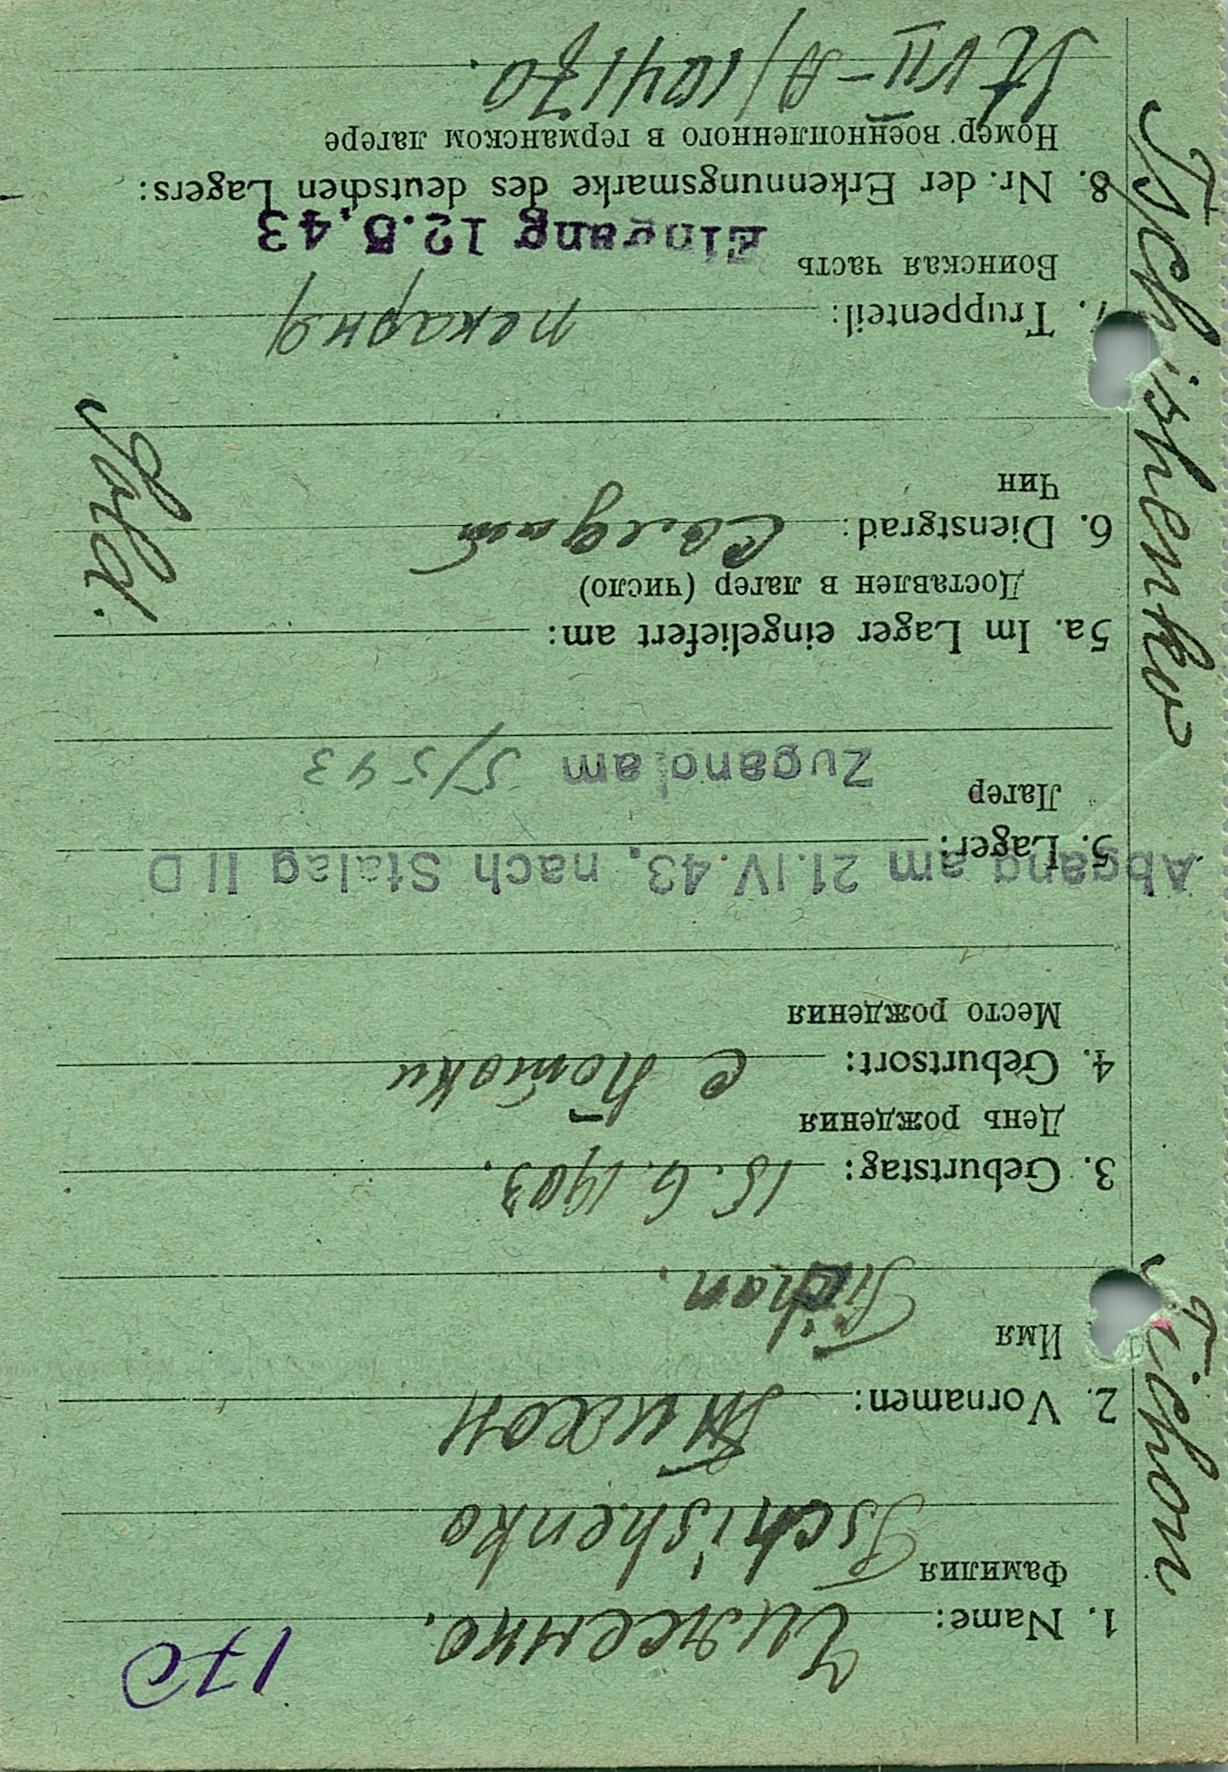 Tschishenko Tichon
170
1. Name: Чиженко.
Фамилия
Tschishenko
2. Vornamen: Тихон
Имя
Tichon.
3. Geburtstag: 15.6.1903.
День рождения
4. Geburtsort: с Потоки
Место рождения
Abgang am 21.IV.43, nach Stalag II D
5. Lager:
Лагер
Zugang am 5/5 43
5a. Im Lager eingeliefert am:
Доставлен в лагер (число)
6. Dienstgrad: Солдат
Чин
Sold.
7. Truppenteil: пекарня
Воинская часть
Eingang 12.5.43
8. Nr. der Erkennungsmarke des deutschen Lagers:
Номер военнопленного в германском лагере
St VII-A/104170.